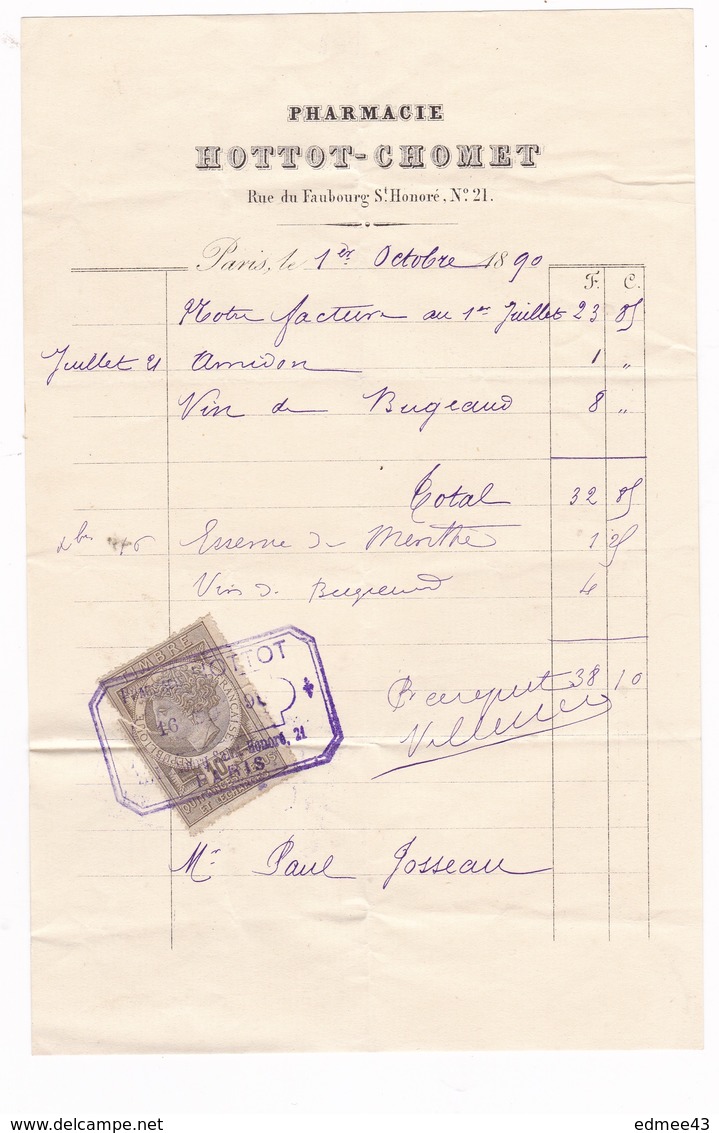 PHARMACIE
HOTTOT-CHOMET
Rue du Faubourg St Honoré, No 21.
Paris, le 1er Octobre 1890
F. C.
Notre facture au 1er Juillet 23 85
Juillet 21 Amidon 1 "
Vin de Bugeaud 8 "
Total 32 85
Xbre 16 Essence de Menthe 1 25
Vin de Bugeaud 4
38 10
TIMBRE
RÉPUBLIQUE FRANÇAISE
10
QUITTANCES REÇUS
ET DÉCHARGES
HOTTOT
16
St Honoré, 21
PARIS
Mr Paul Josseau
edmee43